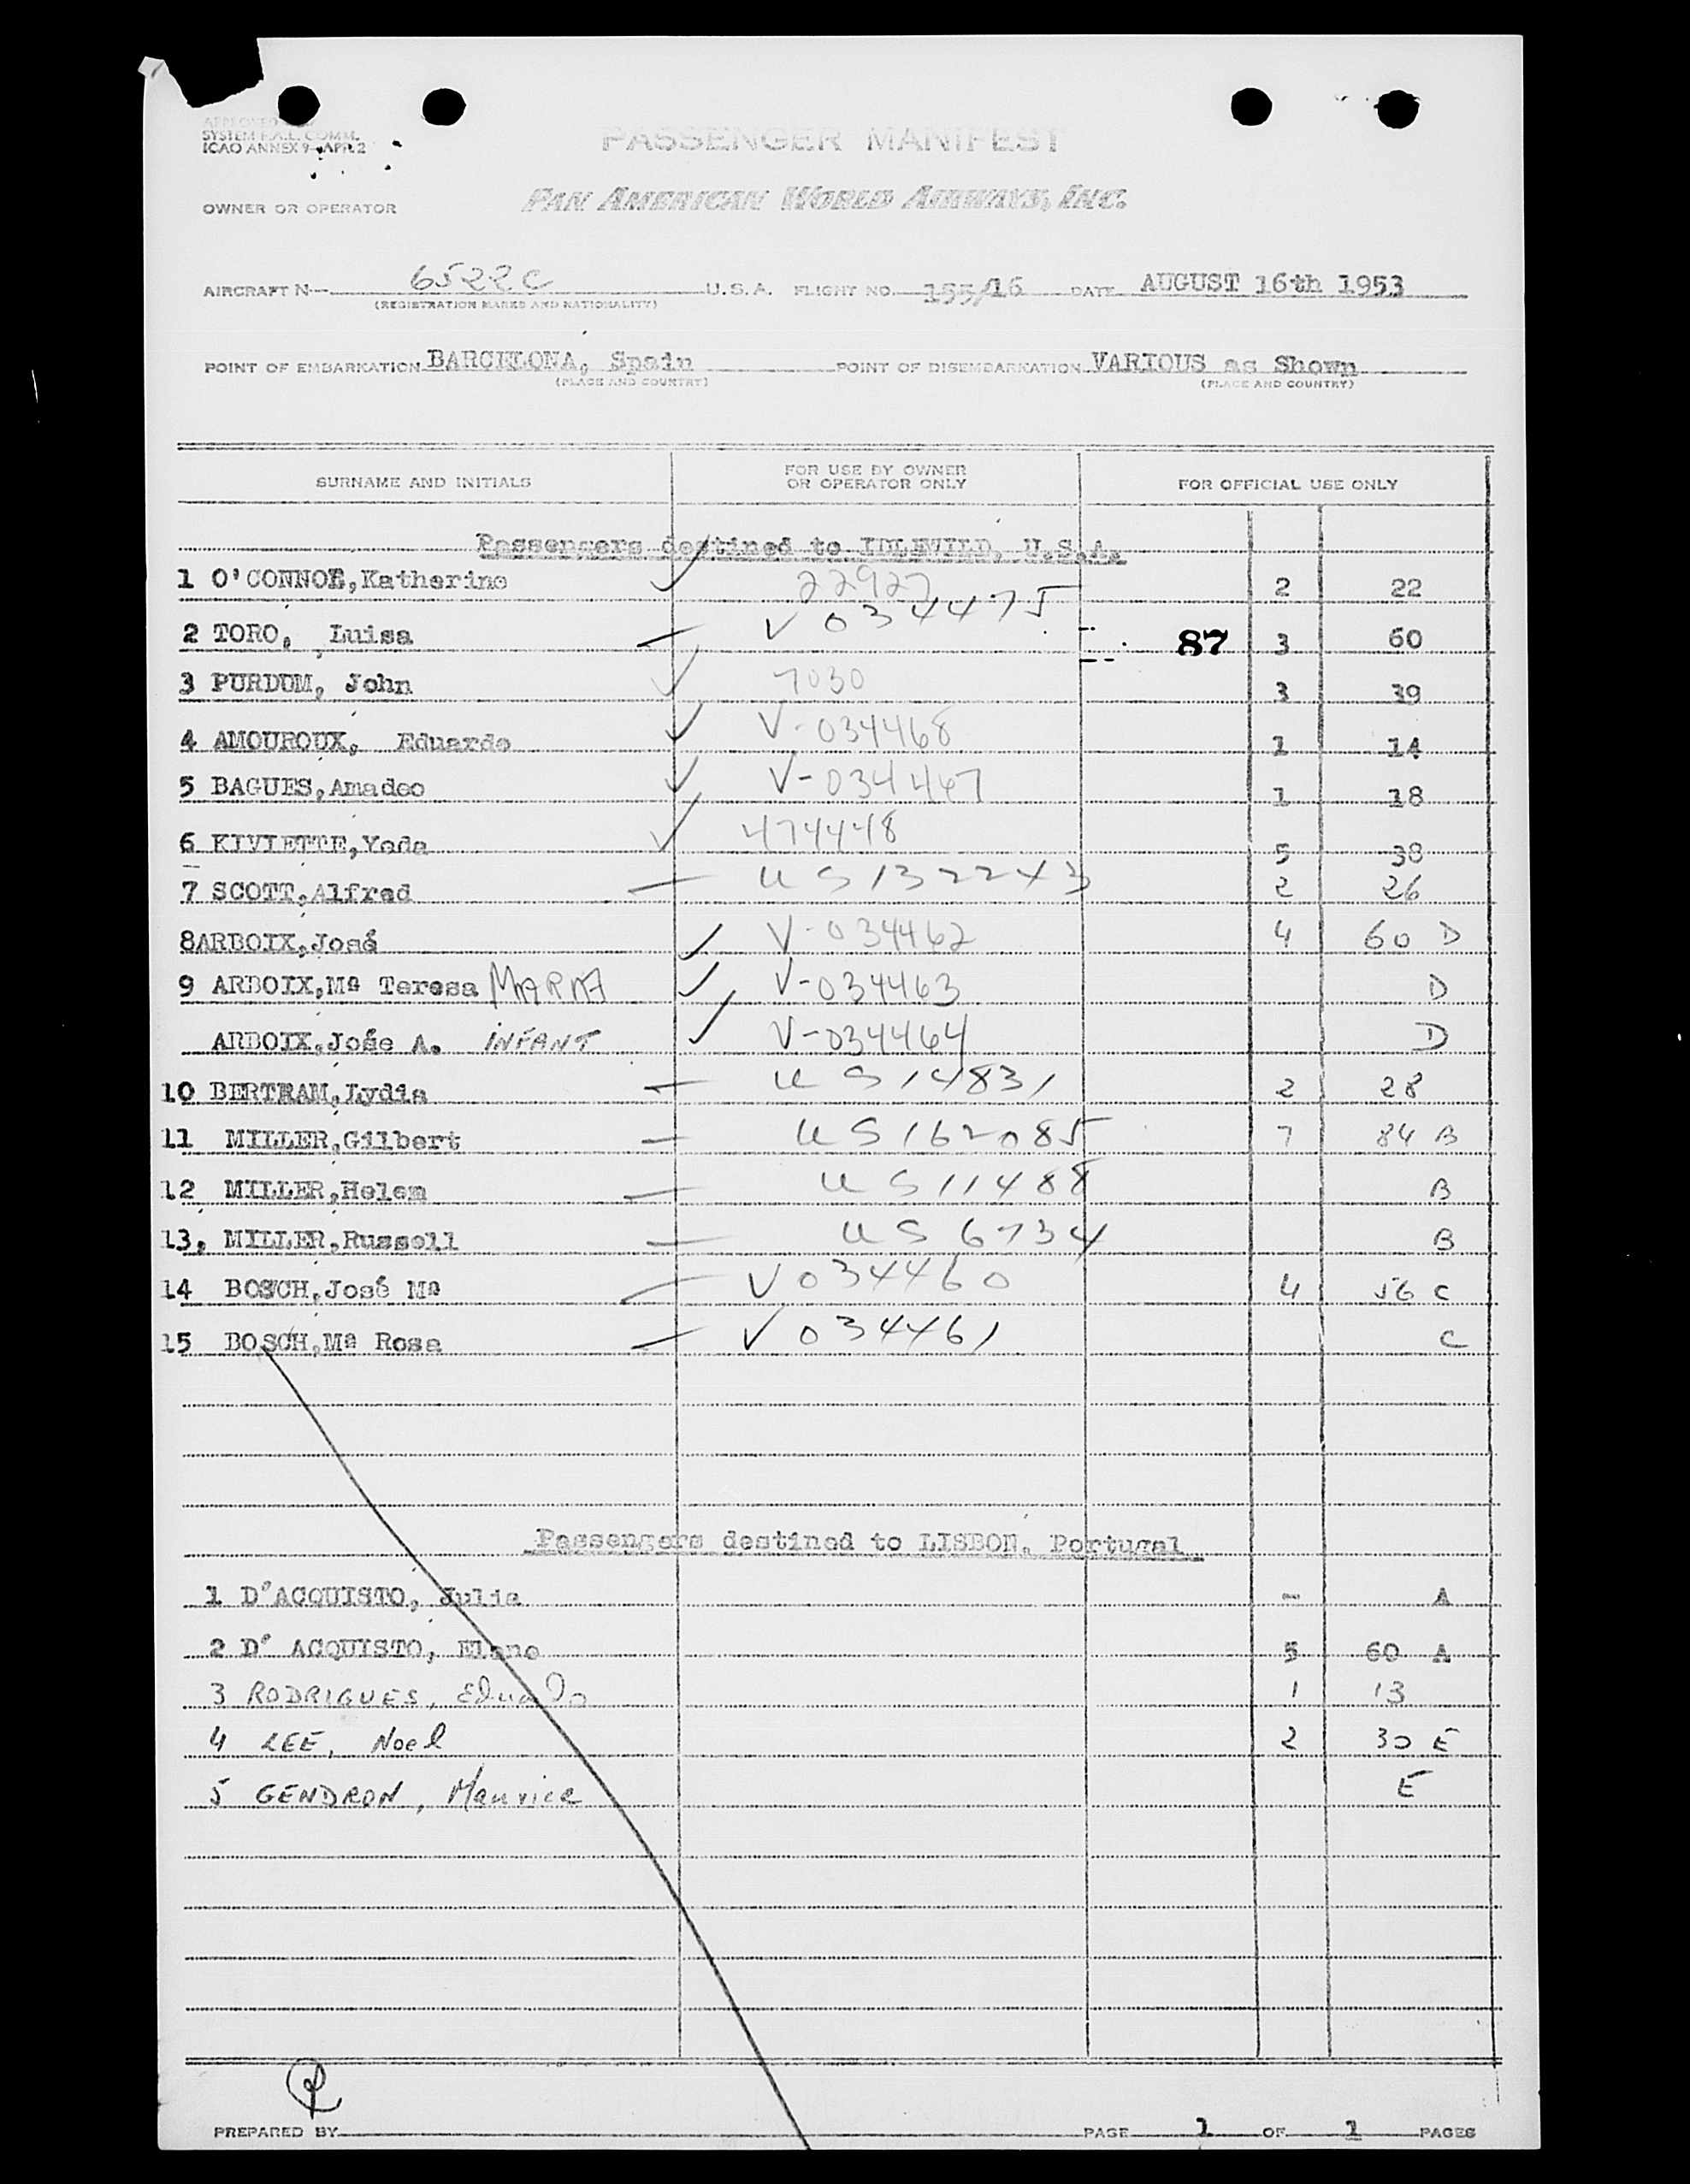 APPROVED
SYSTEM F.A.L. COMM.
ICAO ANNEX 9-APP. 2
PASSENGER MANIFEST
OWNER OR OPERATOR PAN AMERICAN WORLD AIRWAYS, INC.
AIRCRAFT N- 6522C U.S.A. FLIGHT NO. 155/16 DATE AUGUST 16th 1953
(REGISTRATION MARKS AND NATIONALITY)
POINT OF EMBARKATION BARCELONA, Spain POINT OF DISEMBARKATION VARIOUS as Shown
(PLACE AND COUNTRY) (PLACE AND COUNTRY)
SURNAME AND INITIALS FOR USE BY OWNER OR OPERATOR ONLY FOR OFFICIAL USE ONLY
Passengers destined to IDLEWILD, U.S.A.
1 O'CONNOE, Katherine 22927 2 22
2 TORO, Luisa V 034475 87 3 60
3 PURDUM, John 7030 3 39
4 AMOUROUX, Eduardo V-034468 1 14
5 BAGUES, Amadeo V-034467 1 18
6 KIVIETTE, Yada 474448 5 38
7 SCOTT, Alfred US 132243 2 26
8 ARBOIX, José V-034462 4 60 D
9 ARBOIX, Mª Teresa MARIA V-034463 D
ARBOIX, Jośe A. INFANT V-034464 D
10 BERTRAM, Lydia US 14831 2 28
11 MILLER, Gilbert US 162085 7 84 B
12 MILLER, Helen US 11488 B
13, MILLER, Russell US 6734 B
14 BOSCH, José Mª V 034460 4 56 C
15 BOSCH, Mª Rosa V 034461 C
Passengers destined to LISBON, Portugal
1 D'ACQUISTO, Julia - A
2 D' ACQUISTO, Elene 5 60 A
3 RODRIGUES, Eduardo 1 13
4 LEE, Noel 2 30 E
5 GENDRON, Maurice E
PREPARED BY PAGE 1 OF 1 PAGES